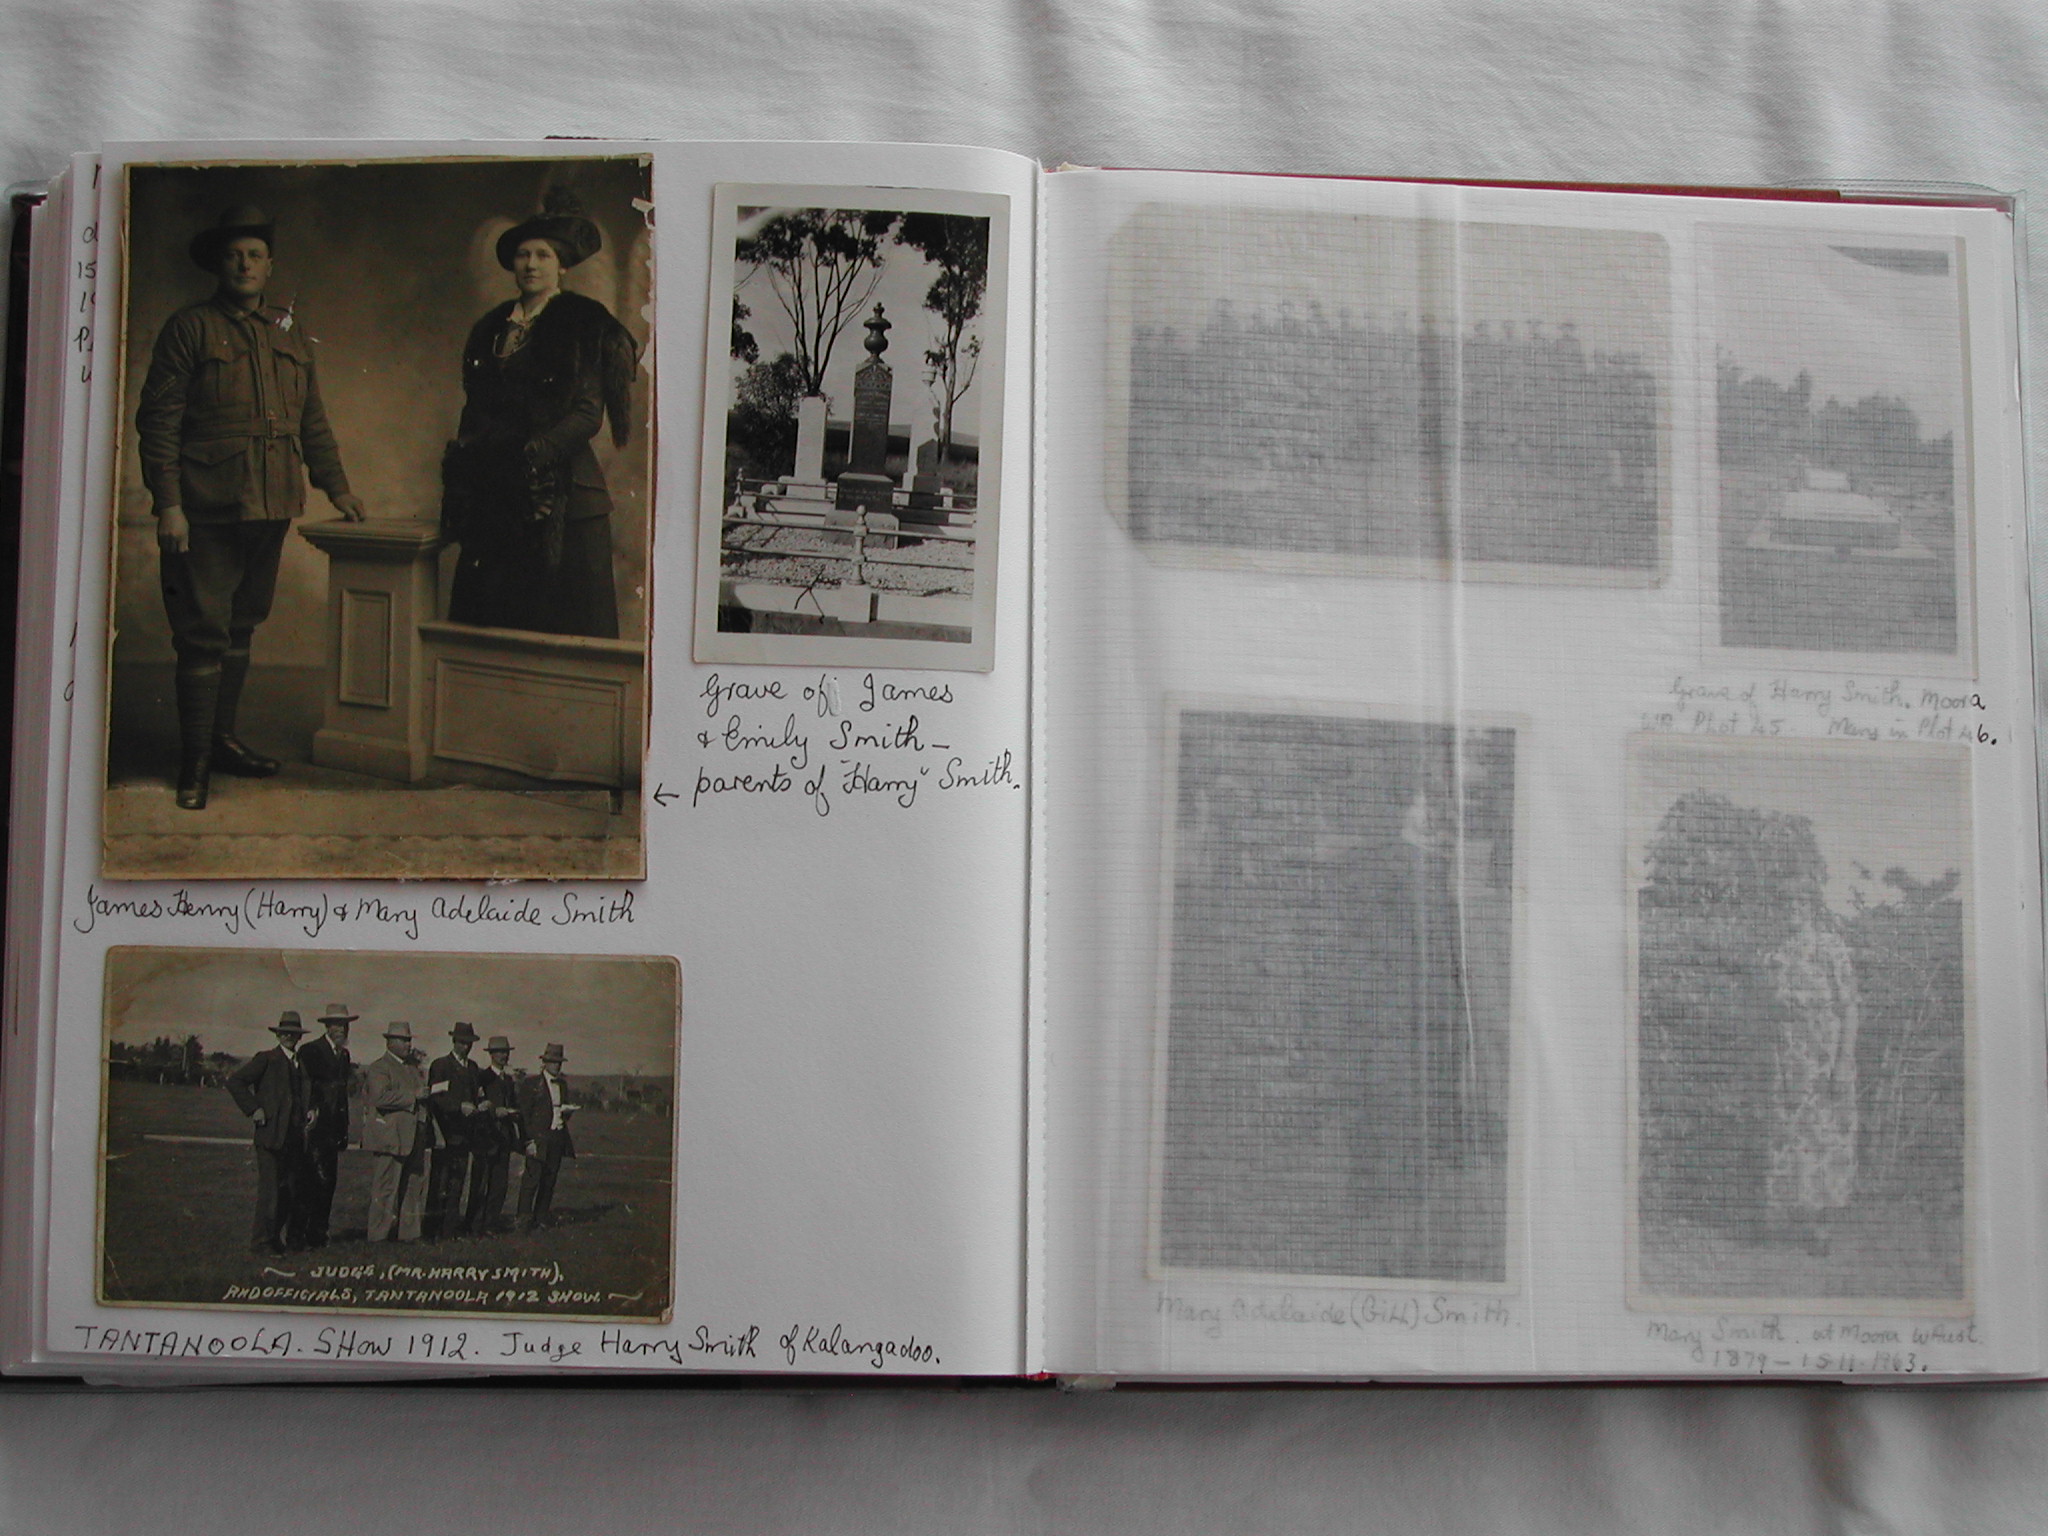 James Henry (Harry) & Mary Adelaide Smith
Grave of James
& Emily Smith –
← parents of "Harry" Smith.
~ JUDGE, (MR. HARRY SMITH),
AND OFFICIALS, TANTANOOLA 1912 SHOW. ~
TANTANOOLA. SHOW 1912. Judge Harry Smith of Kalangadoo.
Grave of Harry Smith. Moora
WA. Plot 45. Mary in Plot 46.
Mary Adelaide (Gill) Smith.
Mary Smith. at Moora W Aust.
1879 – 15.11.1963.
15